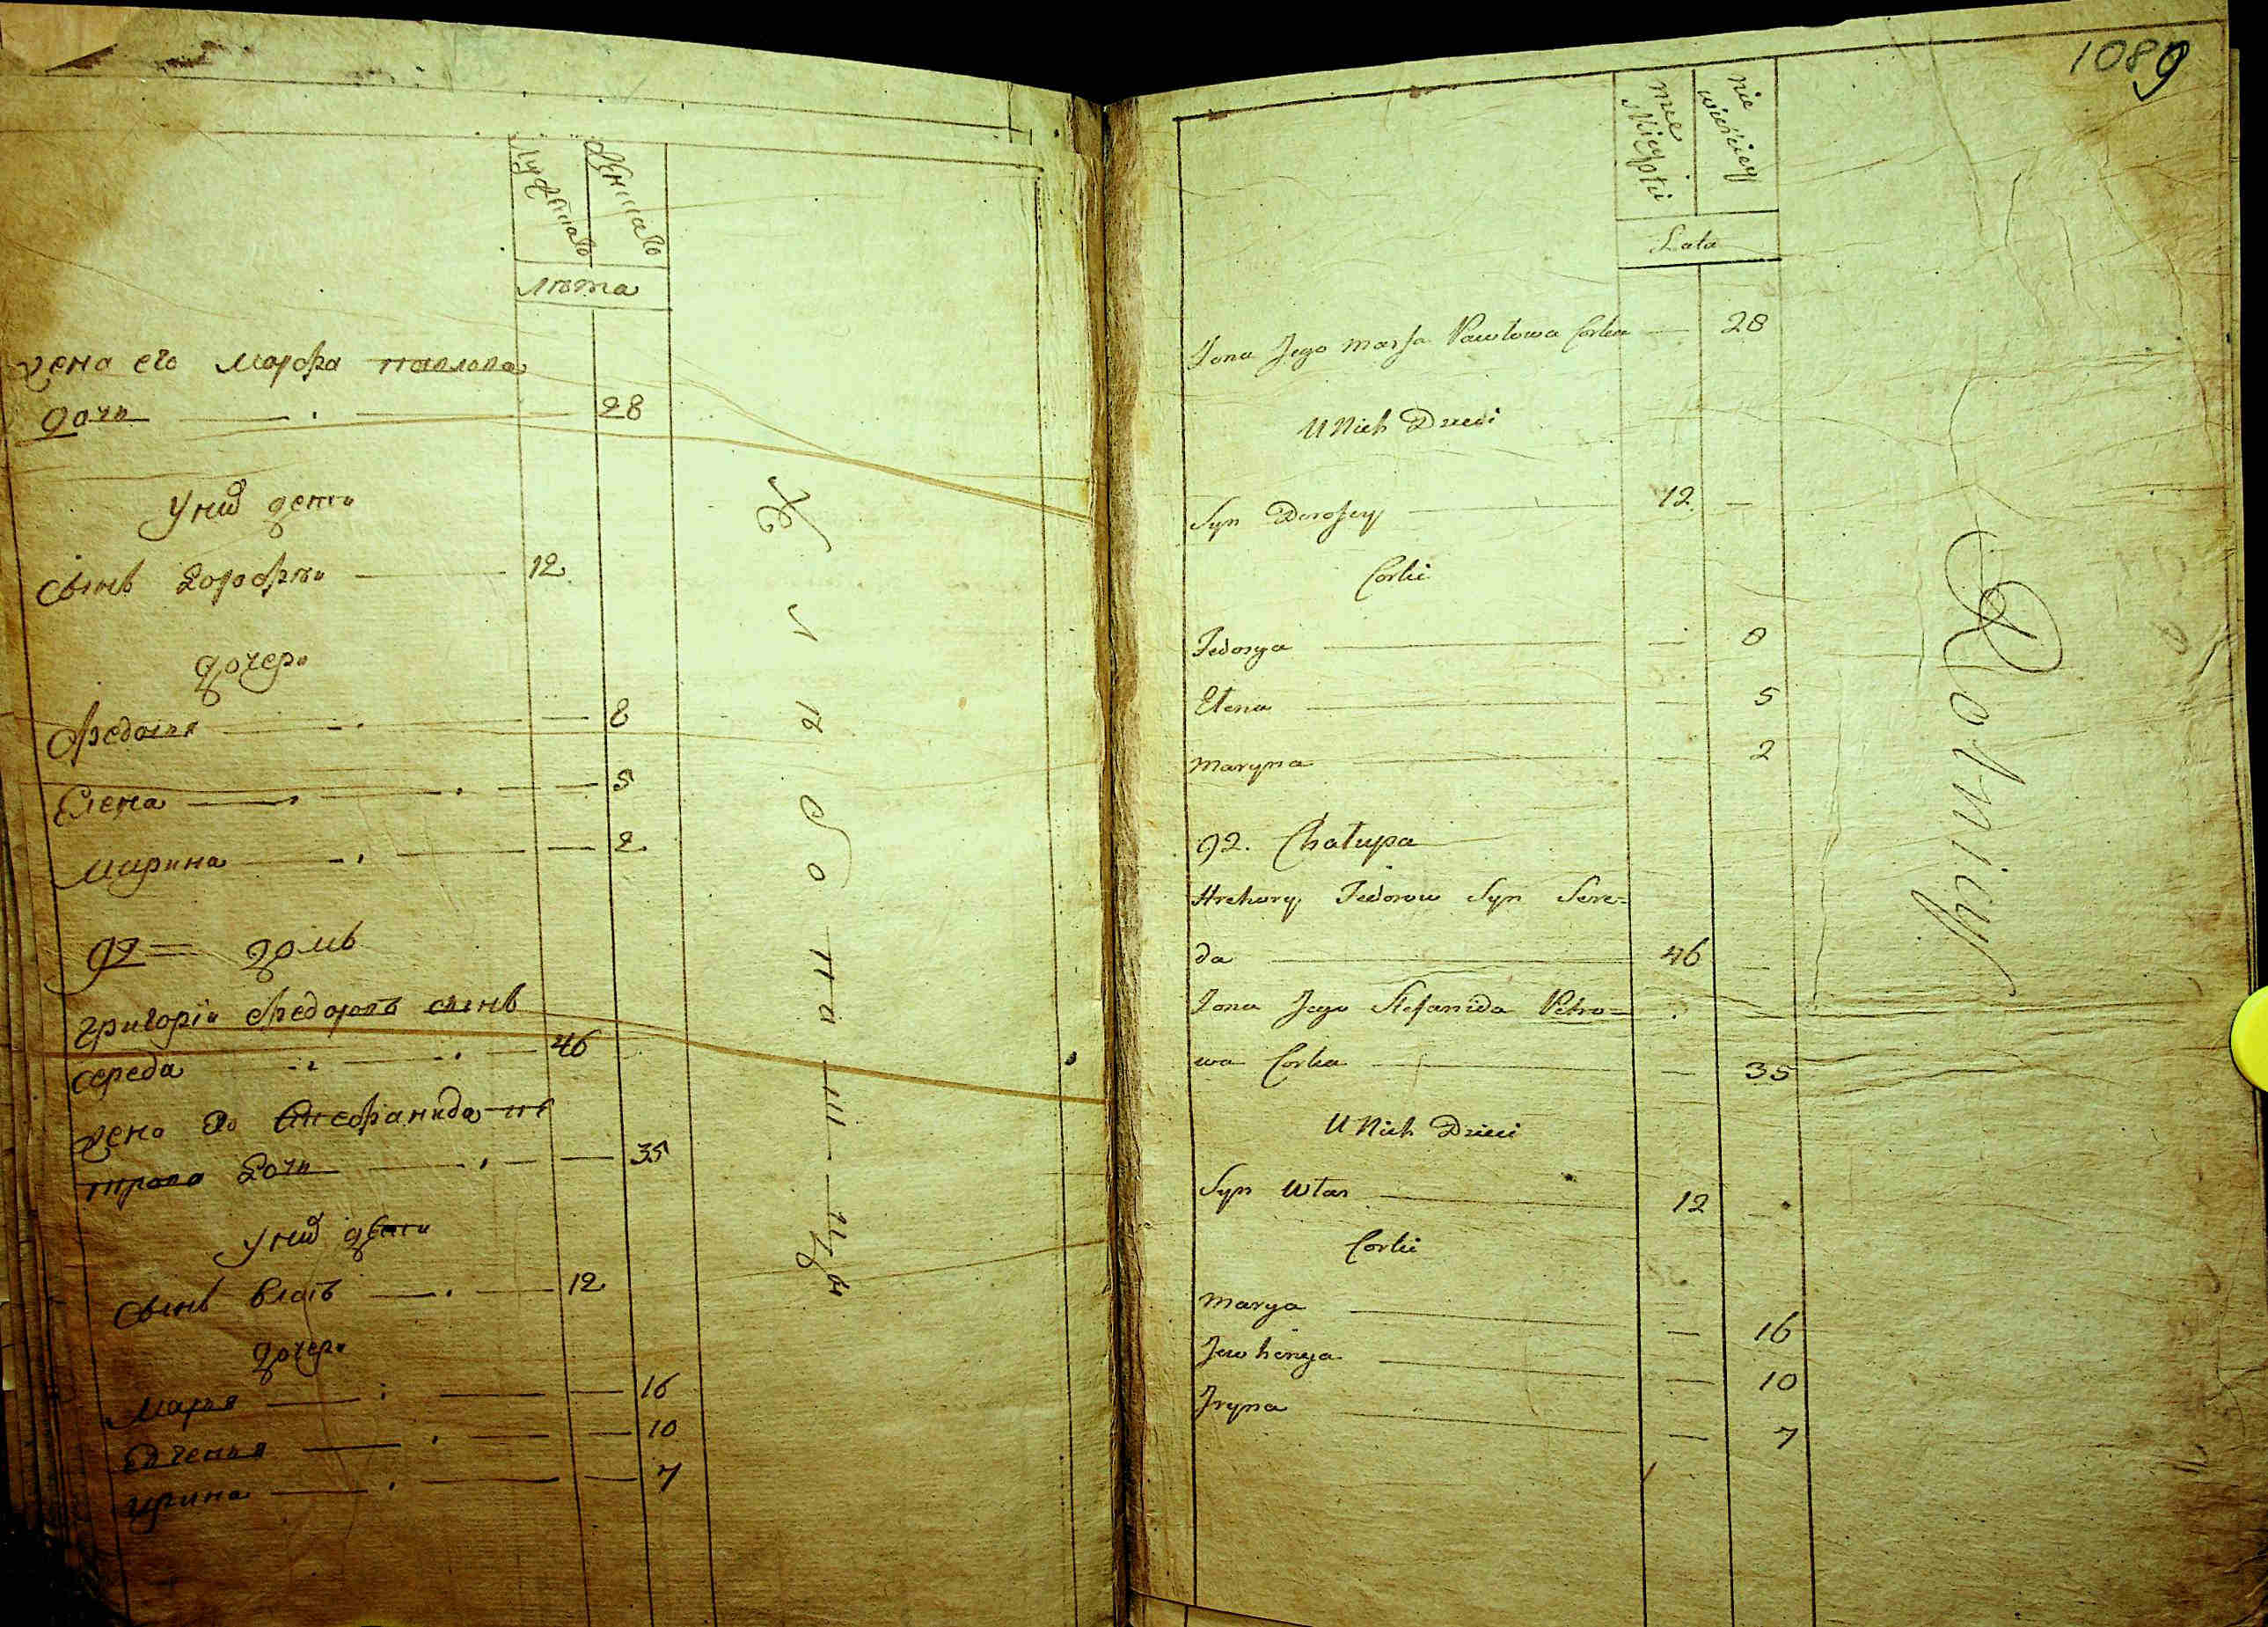 мужеска
женска
лѣта
жена его марфа павлова
дочь 28
У них дети
сынъ дорофѣи 12
дочери
Федосия 8
Елена 5
Марина 2
92 домъ
григоріи Федоровъ сынъ
середа 46
жена его Стефанида пе
трова дочь 35
У них дѣти
сынъ власъ 12
дочери
Марья 16
Евгенья 10
Ирина 7
Хлѣбопашцы
1089
męe Mieyski
nie wieściey
Lata
Zona Jego Marfa Pawłowa Corka — 28
U Nich Dzieci
Syn Dorofey 12 —
Corki
Fedosya — 8
Elena — 5
Maryna — 2
92. Chałupa
Hrehory Fedorow Syn Sere=
da 46 —
Zona Jego Stefanida Petro=
wa Corka — 35
U Nich Dzieci
Syn Ułas 12 —
Corki
Marya — 16
Jewhenya — 10
Iryna — 7
Rolnicy